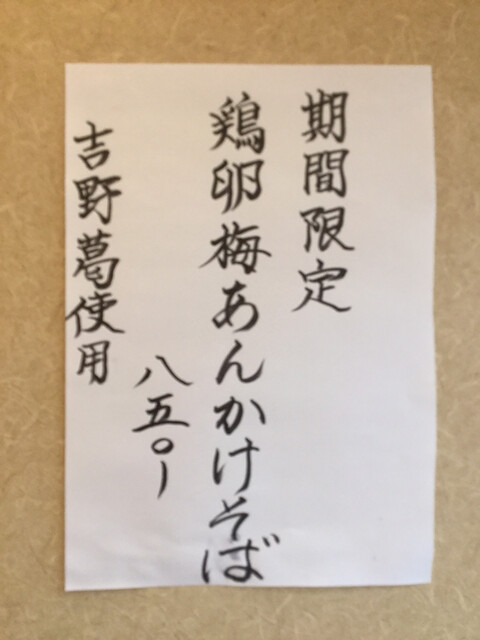 期間限定
鶏卵梅あんかけそば
八五〇ー
吉野葛使用